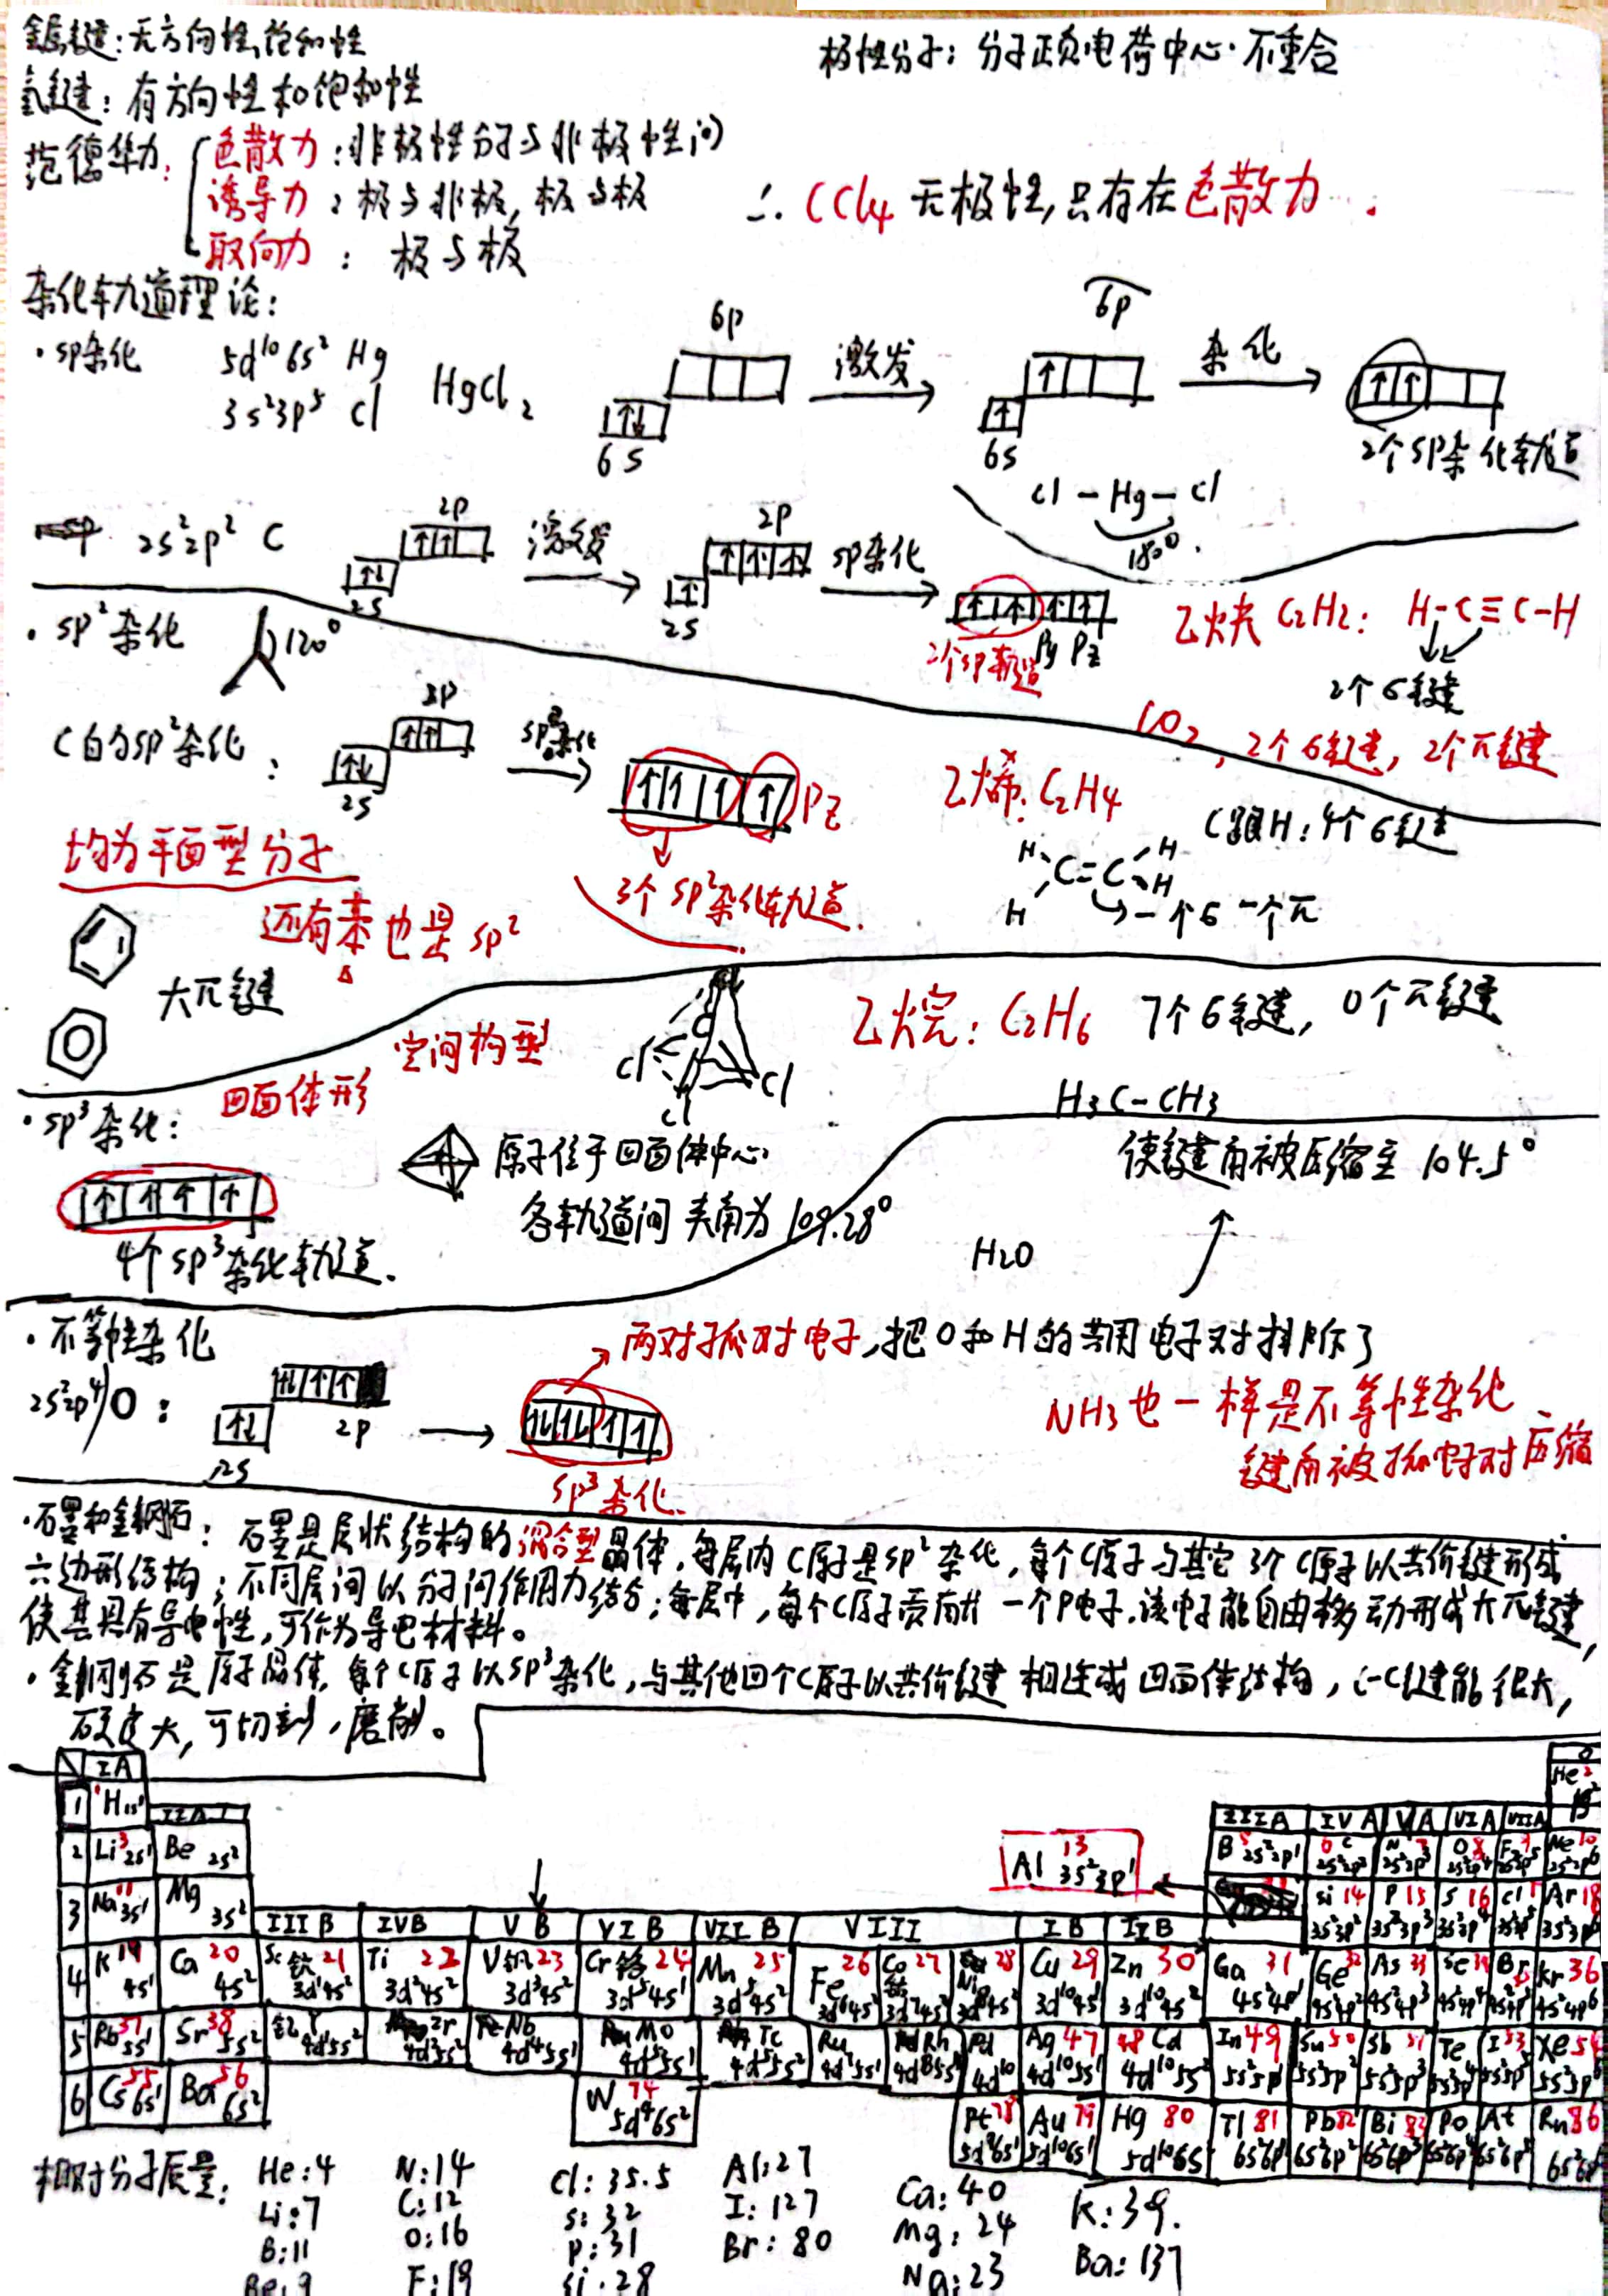 金属键：无方向性、饱和性
极性分子：分子正负电荷中心·不重合
氢键：有方向性和饱和性
范德华力：
色散力：非极性分子与非极性间
诱导力：极与非极，极与极
取向力：极与极
∴ CCl₄ 无极性，只存在色散力.
杂化轨道理论：
·sp杂化
5d¹⁰6s² Hg
3s²3p⁵ Cl
HgCl₂
6p
6s
激发
6p
6s
杂化
2个sp杂化轨道
Cl-Hg-Cl
180°.
2s²2p² C
2p
2s
激发
2p
2s
sp杂化
2个sp轨道
Py Pz
乙炔 C₂H₂: H-C≡C-H
2个σ键
CO₂, 2个σ键, 2个π键
·sp²杂化
120°
C的sp²杂化：
2p
2s
sp²杂化
Pz
3个sp²杂化轨道.
乙烯: C₂H₄
C跟H：4个σ键
H H
C=C
H H
一个σ 一个π
均为平面型分子
还有苯也是sp²
大π键
乙烷：C₂H₆ 7个σ键, 0个π键
H₃C-CH₃
·sp³杂化：
四面体形
空间构型
Cl
Cl
Cl
4个sp³杂化轨道.
原子位于四面体中心.
各轨道间夹角为109.28°
使键角被压缩至104.5°
H₂O
·不等性杂化
2s²2p⁴ O：
2p
2s
sp³杂化.
两对孤对电子，把O和H的共用电子对排斥了
NH₃也一样是不等性杂化
键角被孤电子对压缩
·石墨和金刚石：石墨是层状结构的混合型晶体，每层内C原子是sp²杂化，每个C原子与其它3个C原子以共价键形成
六边形结构；不同层间以分子间作用力结合；每层中，每个C原子贡献一个P电子.该电子能自由移动形成大π键，
使其具有导电性，可作为导电材料。
·金刚石是原子晶体，每个C原子以sp³杂化，与其他四个C原子以共价键相连成四面体结构，C-C键能很大，
硬度大，可切割，磨削。
IA
O
1 H 1s¹
IIA
IIIA IVA VA VIA VIIA
He 2 1s²
2 Li 3 2s¹ Be 2s²
B 5 2s²2p¹ C 2s²2p² N 7 2s²2p³ O 8 2s²2p⁴ F 2s²2p⁵ Ne 10 2s²2p⁶
Al 13 3s²3p¹
3 Na 11 3s¹ Mg 3s²
Si 14 3s²3p² P 15 3s²3p³ S 16 3s²3p⁴ Cl 3s²3p⁵ Ar 18 3s²3p⁶
IIIB IVB VB VIB VIIB VIII IB IIB
4 K 19 4s¹ Ca 20 4s² Sc 钪 21 3d¹4s² Ti 22 3d²4s² V 钒 23 3d³4s² Cr 铬 24 3d⁵4s¹ Mn 25 3d⁵4s² Fe 26 3d⁶4s² Co 钴 27 3d⁷4s² Ni 28 3d⁸4s² Cu 29 3d¹⁰4s¹ Zn 30 3d¹⁰4s² Ga 31 4s²4p¹ Ge 32 4s²4p² As 33 4s²4p³ Se 34 4s²4p⁴ Br 4s²4p⁵ Kr 36 4s²4p⁶
5 Rb 37 5s¹ Sr 38 5s² 钇 Y 4d¹5s² Zr 4d²5s² Nb 4d⁴5s¹ Mo 4d⁵5s¹ Tc 4d⁵5s² Ru 4d⁷5s¹ Rh 4d⁸5s¹ Pd 4d¹⁰ Ag 47 4d¹⁰5s¹ 48 Cd 4d¹⁰5s² In 49 5s²5p¹ Sn 50 5s²5p² Sb 51 5s²5p³ Te 5s²5p⁴ I 53 5s²5p⁵ Xe 54 5s²5p⁶
6 Cs 55 6s¹ Ba 56 6s² W 74 5d⁴6s² Pt 78 5d⁹6s¹ Au 79 5d¹⁰6s¹ Hg 80 5d¹⁰6s Tl 81 6s²6p¹ Pb 82 6s²6p² Bi 83 6s²6p³ Po 6s²6p⁴ At 6s²6p⁵ Rn 86 6s²6p⁶
相对分子质量：He:4 N:14 Cl:35.5 Al:27 Ca:40 K:39.
Li:7 C:12 S:32 I:127 Mg:24 Ba:137
B:11 O:16 P:31 Br:80 Na:23
Be:9 F:19 Si:28